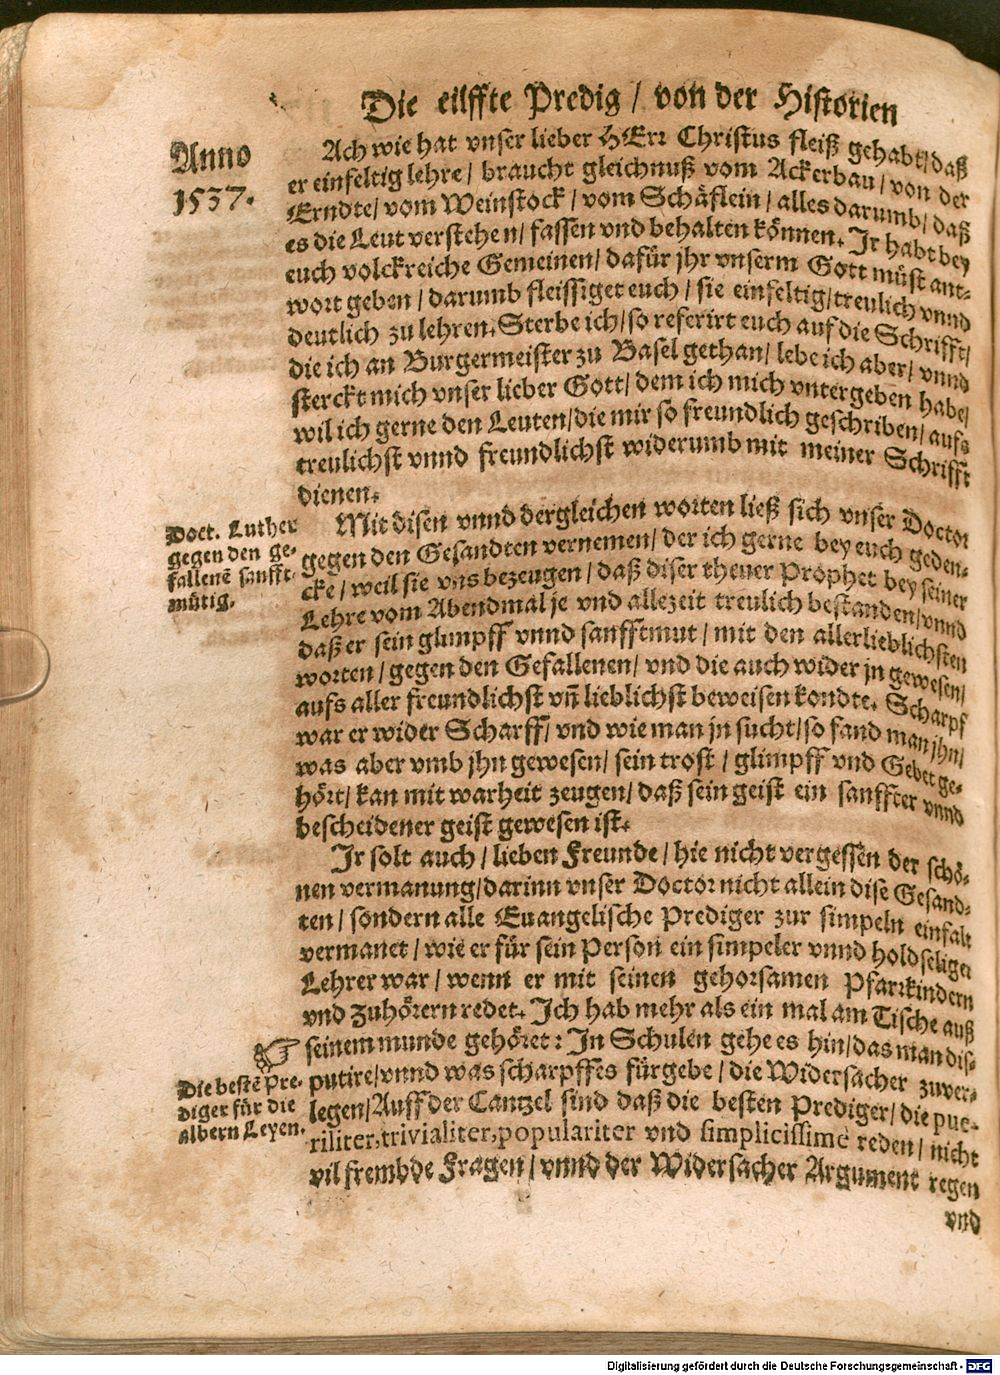 Die eilffte Predig / von der Historien
Anno
1537.
Ach wie hat vnser lieber HErr Christus fleiß gehabt / daß
er einfeltig lehre / braucht gleichnuß vom Ackerbau / von der
Erndte / vom Weinstock / vom Schäflein / alles darumb / daß
es die Leut verstehen / fassen vnd behalten können. Ir habt bey
euch volckreiche Gemeinen / dafür jhr vnserm Gott müst ant-
wort geben / darumb fleissiget euch / sie einfeltig / treulich vnnd
deutlich zu lehren. Sterbe ich / so referirt euch auf die Schrifft /
die ich an Burgermeister zu Basel gethan / lebe ich aber / vnnd
sterckt mich vnser lieber Gott / dem ich mich vntergeben habe /
wil ich gerne den Leuten / die mir so freundlich geschriben / aufs
treulichst vnnd freundlichst widerumb mit meiner Schrifft
dienen.
Doct. Luther
gegen den ge-
fallenē sanfft-
mütig.
Mit disen vnnd dergleichen worten ließ sich vnser Doctor
gegen den Gesandten vernemen / der ich gerne bey euch geden-
cke / weil sie vns bezeugen / daß diser theuer Prophet bey seiner
Lehre vom Abendmal je vnd allezeit treulich bestanden / vnnd
daß er sein glimpff vnnd sanfftmut / mit den allerlieblichsten
worten / gegen den Gefallenen / vnd die auch wider jn gewesen /
aufs aller freundlichst vñ lieblichst beweisen kondte. Scharpf
war er wider Scharff / vnd wie man jn sucht / so fand man jhn /
was aber vmb jhn gewesen / sein trost / glimpff vnd Gebet ge-
hört / kan mit warheit zeugen / daß sein geist ein sanffter vnnd
bescheidener geist gewesen ist.
Ir solt auch / lieben Freunde / hie nicht vergessen der schö-
nen vermanung / darinn vnser Doctor nicht allein dise Gesand-
ten / sondern alle Euangelische Prediger zur simpeln einfalt
vermanet / wie er für sein Person ein simpeler vnnd holdseliger
Lehrer war / wenn er mit seinen gehorsamen Pfarrkindern
vnd Zuhörern redet. Ich hab mehr als ein mal am Tische auß
seinem munde gehöret: In Schulen gehe es hin / das man dis-
putire / vnnd was scharpffes fürgebe / die Widersacher zuver-
legen / Auff der Cantzel sind daß die besten Prediger / die pue-
riliter, trivialiter, populariter vnd simplicissimè reden / nicht
vil frembde Fragen / vnnd der Widersacher Argument regen
☞
Die bestē Pre-
diger für die
albern Leyen.
vnd
Digitalisierung gefördert durch die Deutsche Forschungsgemeinschaft - DFG